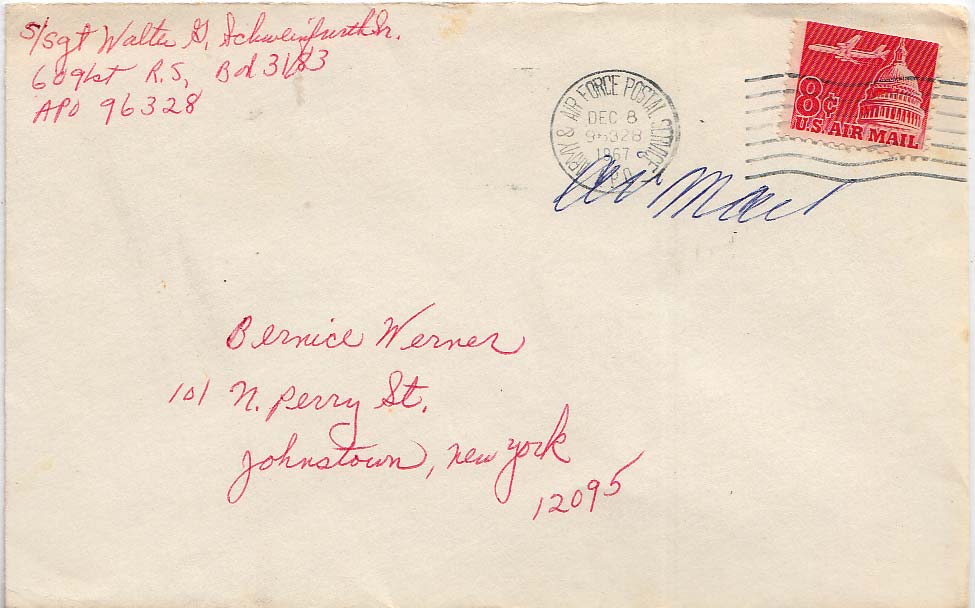 S/Sgt Walter G. Schweinfurth Sr.
6091st R.S, Box 3183
APO 96328
ARMY & AIR FORCE POSTAL SERVICE
DEC 8
96328
1967
8¢
U.S. AIR MAIL
Air Mail
Bernice Werner
101 N. Perry St.
Johnstown, New York
12095